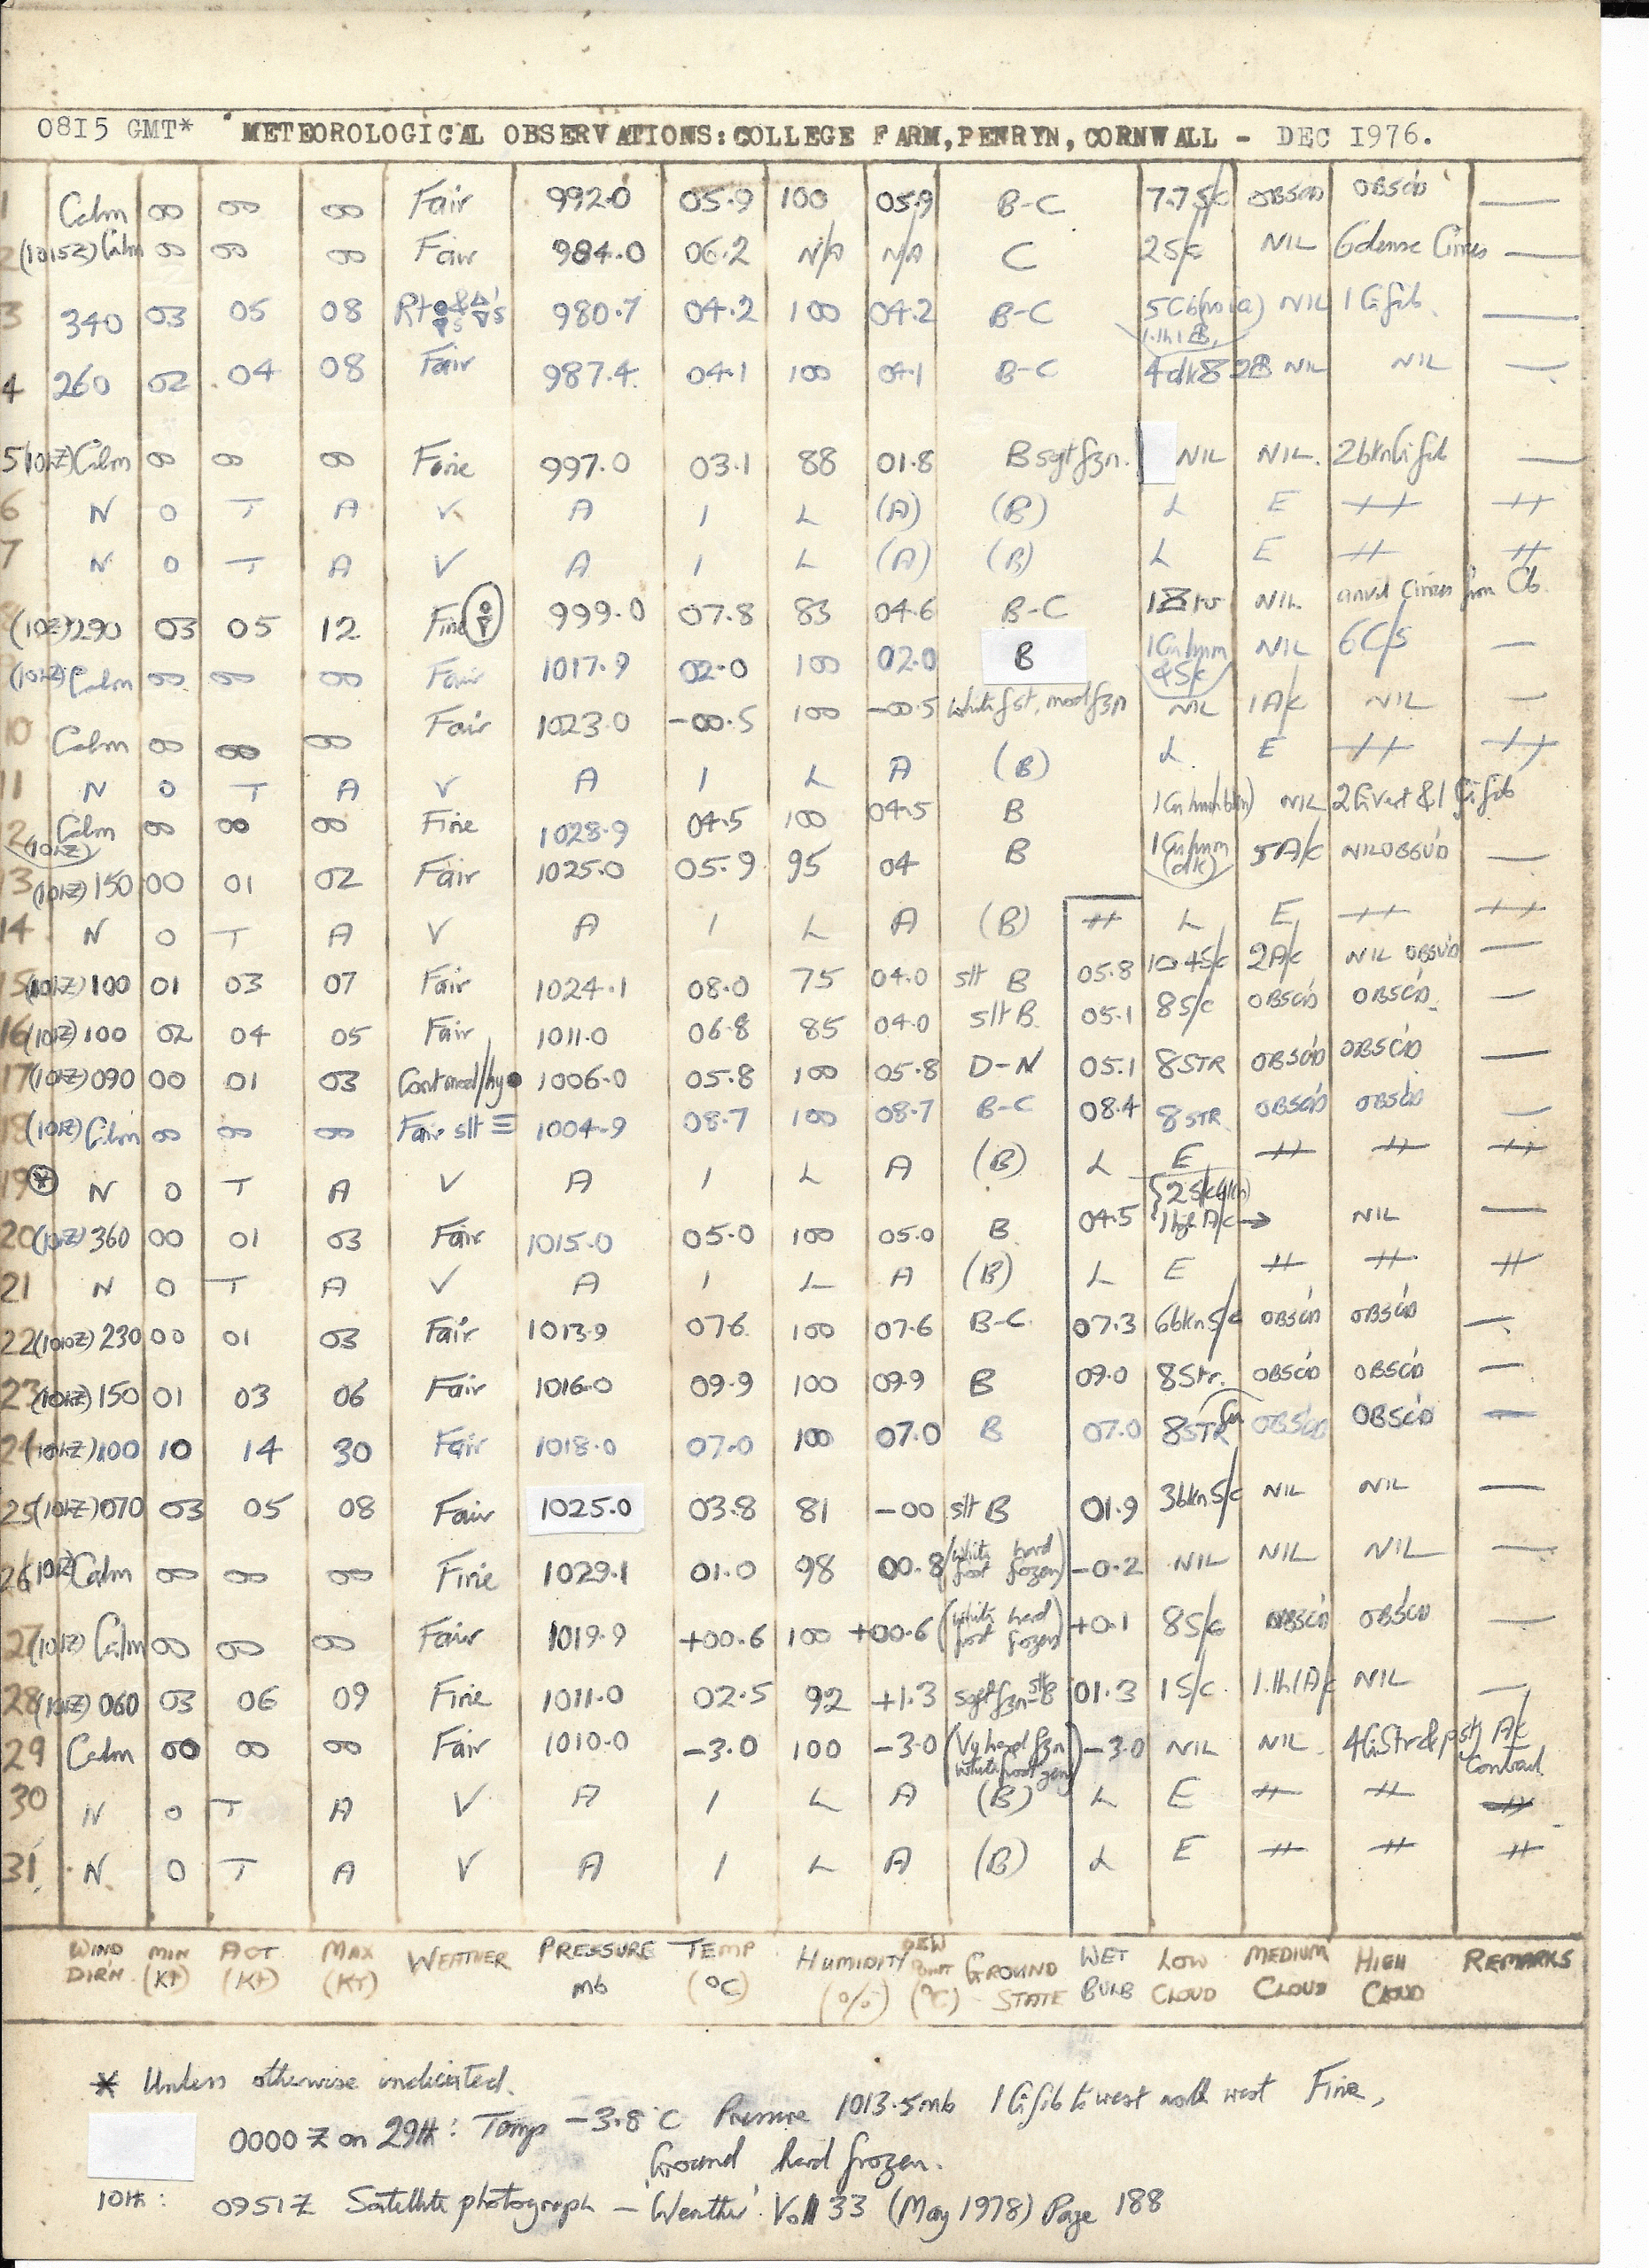 0815 GMT* METEOROLOGICAL OBSERVATIONS: COLLEGE FARM, PENRYN, CORNWALL - DEC 1976.
1 Calm 00 00 00 Fair 992.0 05.9 100 05.9 B-C 7.7 S/c OBSC'D OBSC'D —
2 (1015Z) Calm 00 00 00 Fair 984.0 06.2 N/A N/A C 2 S/c NIL 6 dense Cirrus —
3 340 03 05 08 980.7 04.2 100 04.2 B-C NIL 1 Ci fib. —
4 260 02 04 08 Fair 987.4 04.1 100 04.1 B-C NIL NIL —
5 (10hZ) Calm 00 00 00 Fine 997.0 03.1 88 01.8 B sgt fzn. NIL NIL. 2 bkn Ci fib —
6 N O T A V A I L (A) (B) L E ++ ++
7 N O T A V A I L (A) (B) L E ++ ++
(10Z) 290 03 05 12 Fine 999.0 07.8 83 04.6 B-C NIL. anvil Cirrus from Cb
(10hZ) Calm 00 00 00 Fair 1017.9 02.0 100 02.0 B 1 Cu hum & S/c NIL 6 C/s —
10 Calm 00 00 00 Fair 1023.0 -00.5 100 -00.5 White fst, mod fzn NIL 1 A/c NIL —
11 N O T A V A I L A (B) L E ++ ++
12 (10hZ) Calm 00 00 00 Fine 1028.9 04.5 100 04.5 B 1 Cu hum (bkn) NIL 2 Ci vert & 1 Ci fib
13 (10hZ) 150 00 01 02 Fair 1025.0 05.9 95 04 B 1 Cu hum (dk) 5 A/c NIL OBSV'D —
14 N O T A V A I L A (B) ++ L E ++ ++
15 (10hZ) 100 01 03 07 Fair 1024.1 08.0 75 04.0 slt B 05.8 4 S/c 2 A/c NIL OBSV'D —
16 (10hZ) 100 02 04 05 Fair 1011.0 06.8 85 04.0 slt B. 05.1 8 S/c OBSC'D OBSC'D. —
17 (10hZ) 090 00 01 03 Cont mod/hy ● 1006.0 05.8 100 05.8 D-N 05.1 8 STR OBSC'D OBSC'D —
18 (10hZ) Calm 00 00 00 Fair slt ≡ 1004.9 08.7 100 08.7 B-C 08.4 8 STR OBSC'D OBSC'D —
19 (*) N O T A V A I L A (B) L E ++ ++ ++
20 (10hZ) 360 00 01 03 Fair 1015.0 05.0 100 05.0 B 04.5 A/c → NIL —
21 N O T A V A I L A (B) L E ++ ++ ++
22 (1010Z) 230 00 01 03 Fair 1013.9 07.6 100 07.6 B-C. 07.3 6 bkn S/c OBSC'D OBSC'D —
23 (10hZ) 150 01 03 06 Fair 1016.0 09.9 100 09.9 B 09.0 8 Str. OBSC'D OBSC'D —
24 (10hZ) 100 10 14 30 Fair 1018.0 07.0 100 07.0 B 07.0 8 STR Cu OBSC'D OBSC'D —
25 (10hZ) 070 03 05 08 Fair 1025.0 03.8 81 -00 slt B 01.9 3 bkn S/c NIL NIL —
26 (10hZ) Calm 00 00 00 Fine 1029.1 01.0 98 00.8 (White frost hard frozen) -0.2 NIL NIL NIL —
27 (10hZ) Calm 00 00 00 Fair 1019.9 +00.6 100 +00.6 (White frost hard frozen) +0.1 8 S/c OBSC'D OBSC'D —
28 (10hZ) 060 03 06 09 Fine 1011.0 02.5 92 +1.3 sgt fzn-slt B 01.3 1 S/c. 1.th 1 A/c NIL —
29 Calm 00 00 00 Fair 1010.0 -3.0 100 -3.0 (Vy hard fzn White frost gen) -3.0 NIL NIL. 4 Ci Str & pst A/c Contrail
30 N O T A V A I L A (B) L E ++ ++ ++
31 N O T A V A I L A (B) L E ++ ++ ++
WIND DIR'N MIN (KT) ACT (KT) MAX (KT) WEATHER PRESSURE mb TEMP (°C) HUMIDITY (%) DEW POINT (°C) GROUND STATE WET BULB LOW CLOUD MEDIUM CLOUD HIGH CLOUD REMARKS
* Unless otherwise indicated.
0000 Z on 29th: Temp -3.8°C Pressure 1013.5mb 1 Ci fib to west north west Fine,
Ground hard frozen.
10th: 0951Z Satellite photograph - 'Weather' Vol 33 (May 1978) Page 188